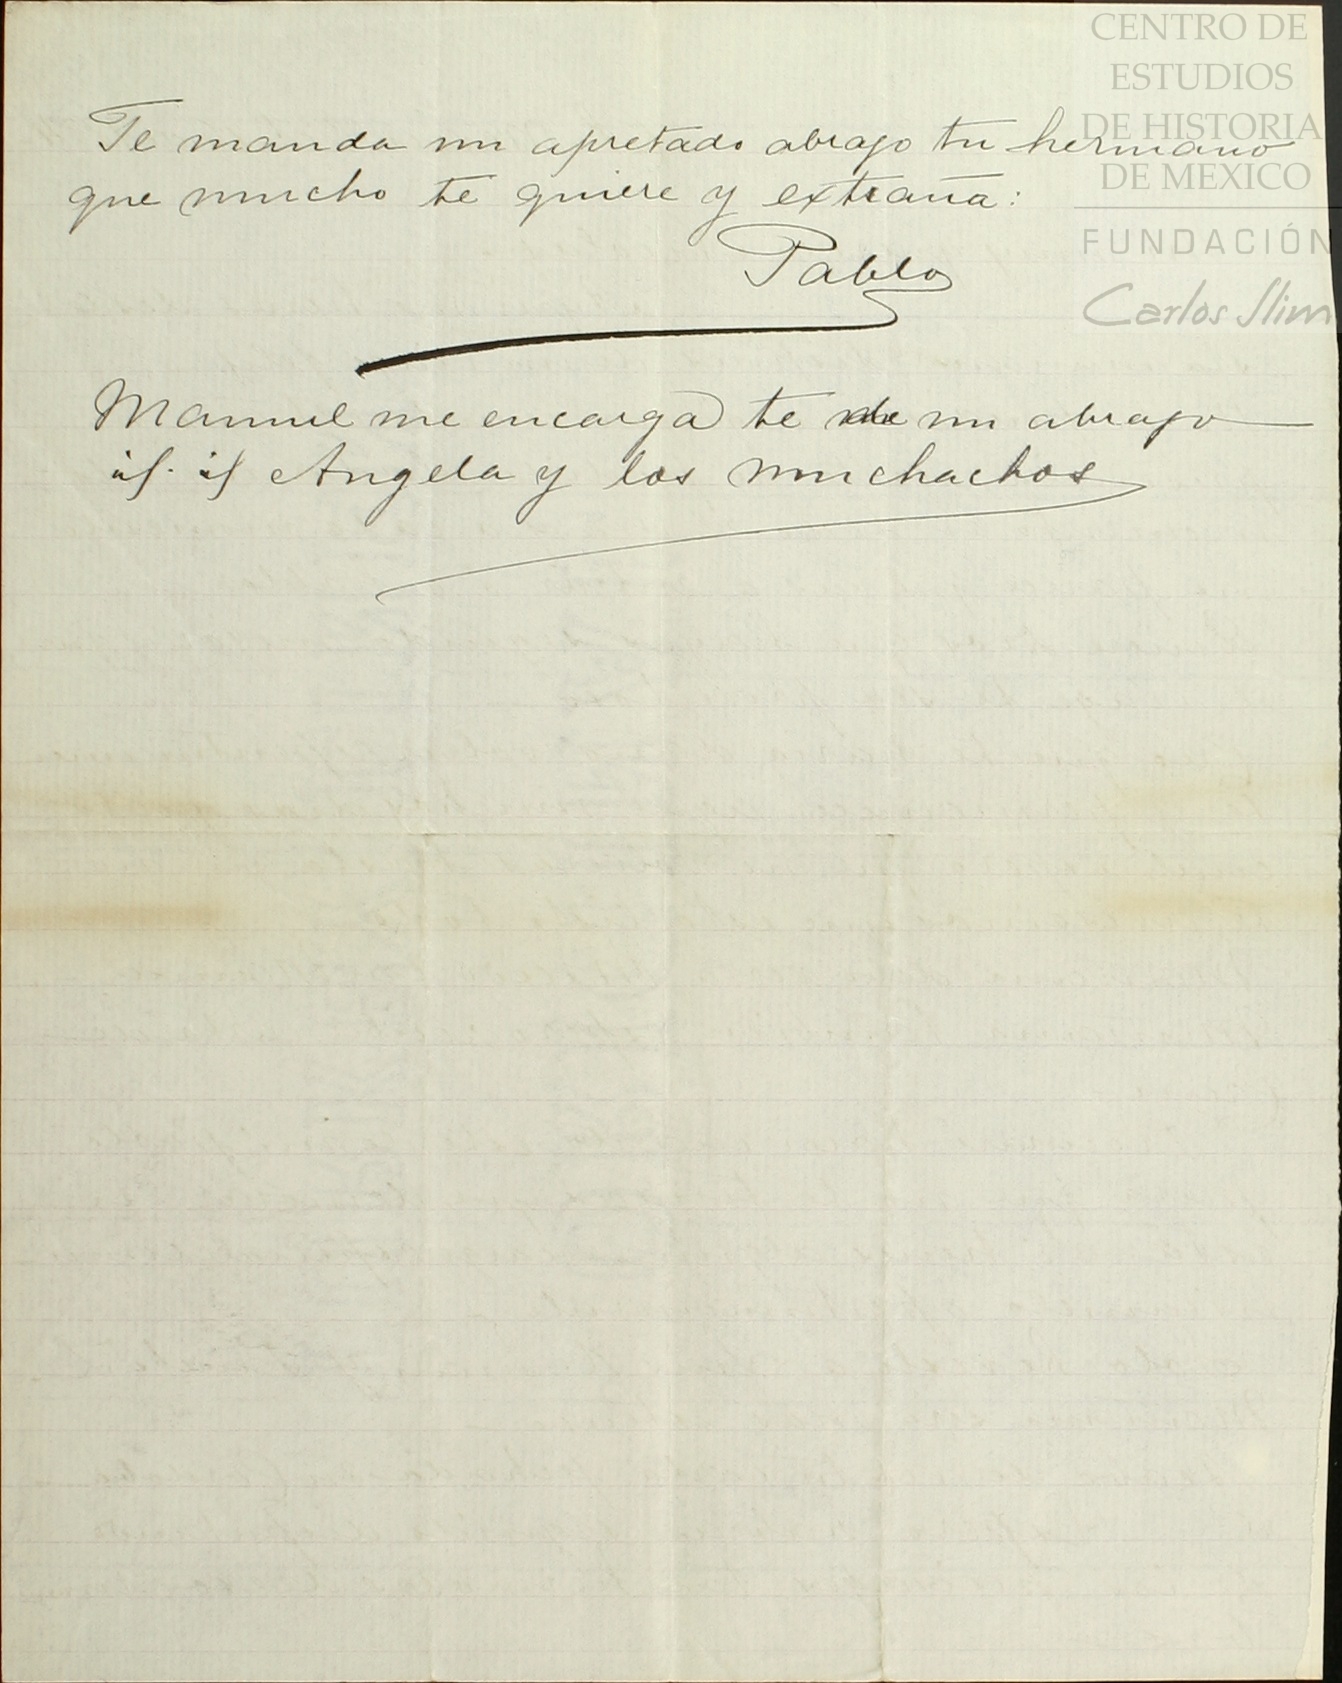 CENTRO DE
ESTUDIOS
DE HISTORIA
DE MEXICO
FUNDACIÓN
Carlos Slim
Te manda un apretado abrazo tu hermano
que mucho te quiere y extraña:
Pablo
Manuel me encarga te de un abrazo
id. id Angela y los muchachos